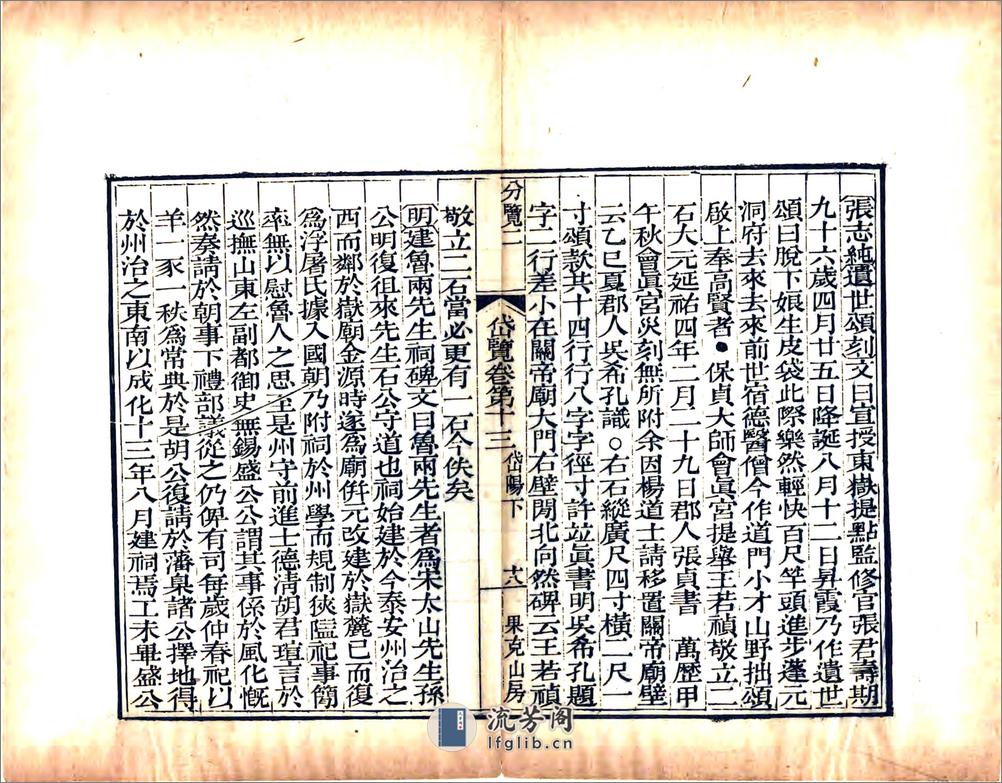 張志純遺世頌刻文曰宣授東嶽提點監修官張君壽期
九十六歲四月廿五日降誕八月十二日昇霞乃作遺世
頌曰脫下娘生皮袋此際樂然輕快百尺竿頭進步蓬元
洞府去來去來前世宿德醫僧今作道門小才山野拙頌
啟上奉高賢者●保貞大師會眞宮提舉王若禎敬立二
石大元延祐四年二月二十九日郡人張貞書　萬歷甲
午秋會眞宮災刻無所附余因楊道士請移置關帝廟壁
云乙巳夏郡人吳希孔識○右石縱廣尺四寸橫二尺一
寸頌款共十四行行八字字徑寸許竝眞書明吳希孔題
字二行差小在關帝廟大門右壁閒北向然碑云王若禎
敬立二石當必更有一石今佚矣
明建魯兩先生祠碑文曰魯兩先生者爲宋太山先生孫
公明復徂來先生石公守道也祠始建於今泰安州治之
西而鄰於嶽廟金源時遂爲廟併元改建於嶽麓已而復
爲浮屠氏據入國朝乃附祠於州學而規制狹隘祀事簡
率無以慰魯人之思至是州守前進士德淸胡君瑄言於
巡撫山東左副都御史無錫盛公公謂其事係於風化慨
然奏請於朝事下禮部議從之仍俾有司每歲仲春祀以
羊一豕一秩爲常典於是胡公復請於藩臬諸公擇地得
於州治之東南以成化十三年八月建祠焉工未畢盛公
分覽二
岱覽卷第十三　岱陽下　十八　果克山房
流芳阁
lfglib.cn